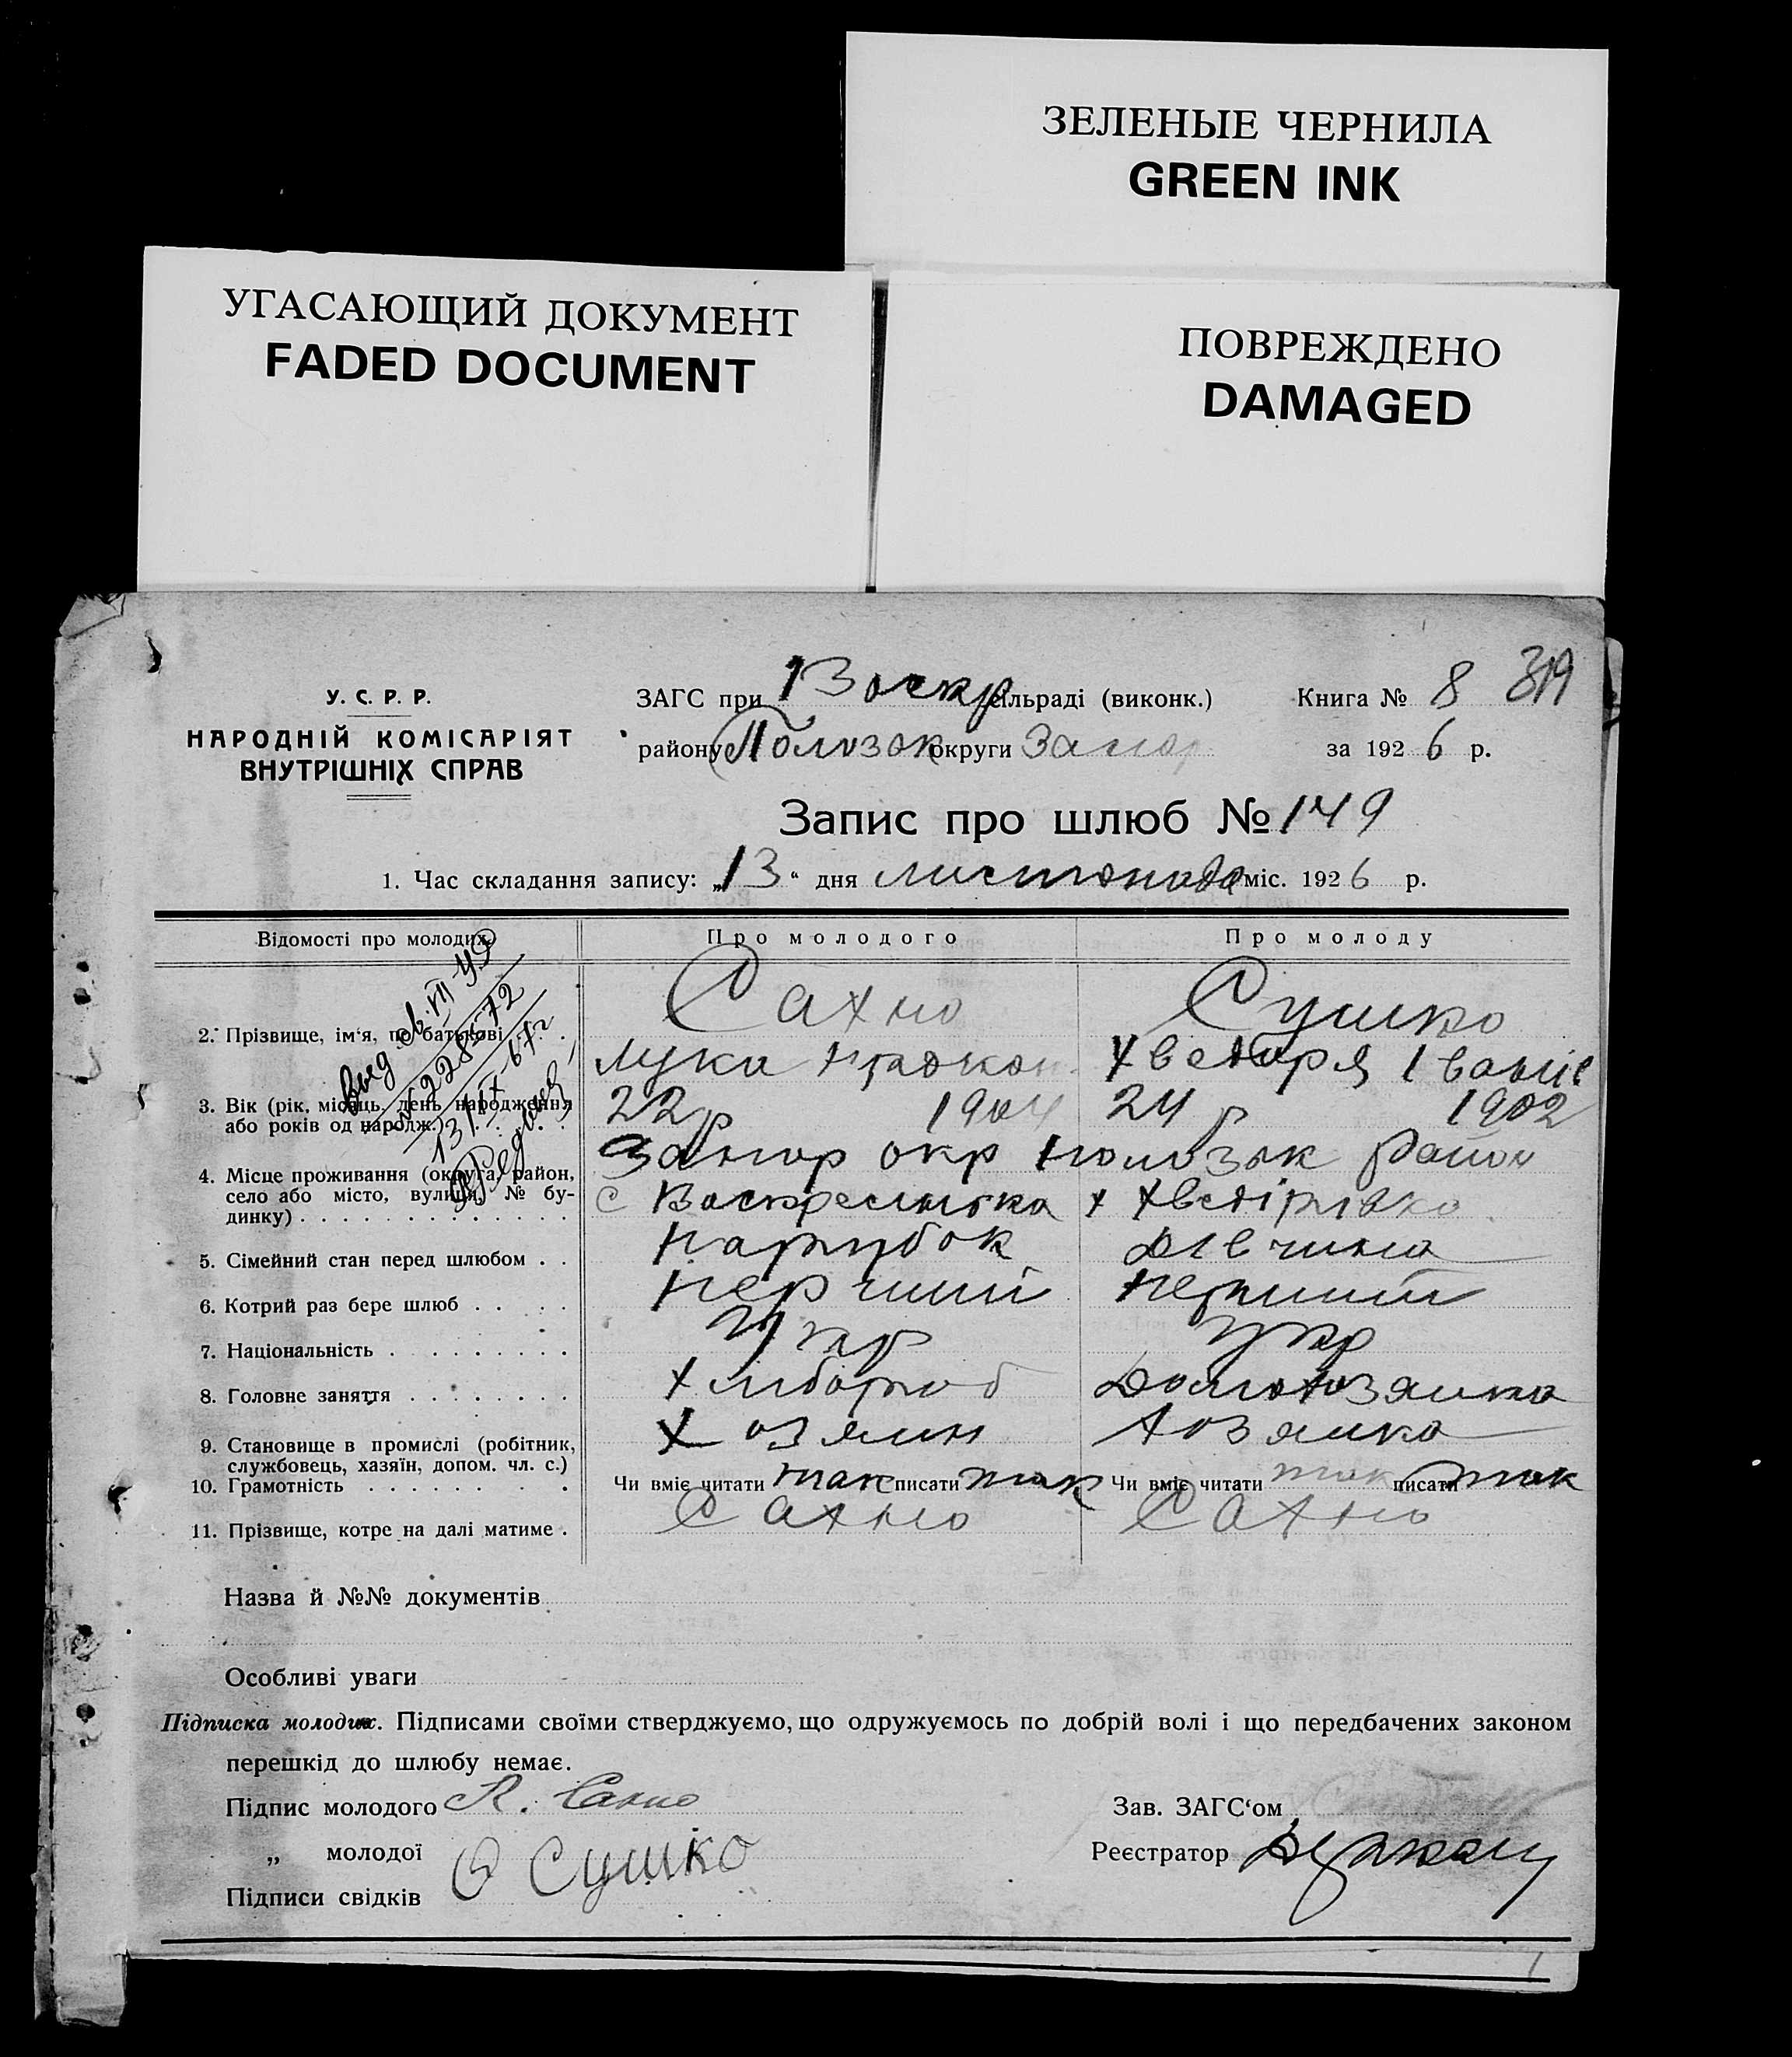 ЗЕЛЕНЫЕ ЧЕРНИЛА
GREEN INK
УГАСАЮЩИЙ ДОКУМЕНТ
FADED DOCUMENT
ПОВРЕЖДЕНО
DAMAGED
У. С. Р. Р.
НАРОДНІЙ КОМІСАРІЯТ
ВНУТРІШНІХ СПРАВ
ЗАГС при Воскр сільраді (виконк.) Книга № 8 319
району Пологзок округи Запор за 1926 р.
Запис про шлюб № 149
1. Час складання запису: „13“ дня листопада міс. 1926 р.
Відомості про молодих Про молодого Про молоду
2. Прізвище, ім‘я, по батькові Сахно Сушко
Лука Хведоря Іванів
3. Вік (рік, місяць, день народження або років од народж.) 22 р 1904 24 р 1902
4. Місце проживання (округа, район, Запор окр район
село або місто, вулиця, № бу-
динку) с Воскресенка х Хведірівка
5. Сімейний стан перед шлюбом . . Парубок Дівчина
6. Котрий раз бере шлюб . . . . Перший Перший
7. Національність . . . . . . . . . Укр Укр
8. Головне заняття . . . . . . . . Хлібороб Домохозяйка
9. Становище в промислі (робітник, Хозяин Хозяйка
службовець, хазяїн, допом. чл. с.)
10. Грамотність . . . . . . . . . Чи вміє читати так писати так Чи вміє читати так писати так
11. Прізвище, котре на далі матиме . Сахно Сахно
Назва й №№ документів
Особливі уваги
Підписка молодих. Підписами своїми стверджуємо, що одружуємось по добрій волі і що передбачених законом
перешкід до шлюбу немає.
Підпис молодого Л. Сахно Зав. ЗАГС‘ом
„ молодої Сушко Реєстратор
Підписи свідків